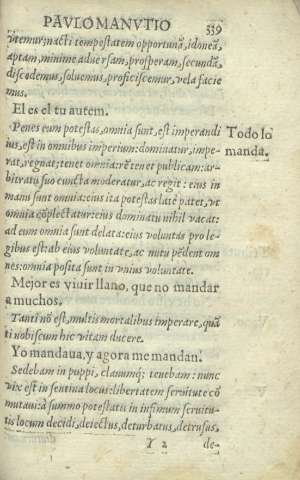 PAVLO MANVTIO 339
vtemur; nacti tempestatem opportunā, idoneā,
aptam, minime aduersam, prosperam, secundā,
discedemus, soluemus, proficiscemur, vela facie
mus.
El es el tu autem.
Penes eum potestas, omnia sunt, est imperandi
ius, est in omnibus imperium: dominatur, impe-
rat, regnat; tenet omnia: rē tenet publicam: ar-
bitratu suo cuncta moderatur, ac regit: eius in
manu sunt omnia: eius ita potestas late patet, vt
omnia cōplectatur: eius dominatu nihil vacat:
ad eum omnia sunt delata: eius voluntas pro le-
gibus est: ab eius voluntate, ac nutu pēdent om
nes: omnia posita sunt in vnius voluntate.
Todo lo
manda.
Mejor es viuir llano, que no mandar
a muchos.
Tanti nō est, multis mortalibus imperare, quā
ti nobiscum hic vitam ducere.
Yo mandaua, y agora me mandan.
Sedebam in puppi, clanumq; tenebam: nunc
vix est in sentina locus: libertatem seruitute cō
mutaui: à summo potestatis in infimum seruitu-
tis locum decidi, deiectus, deturbatus, detrusus,
Y 2 de-